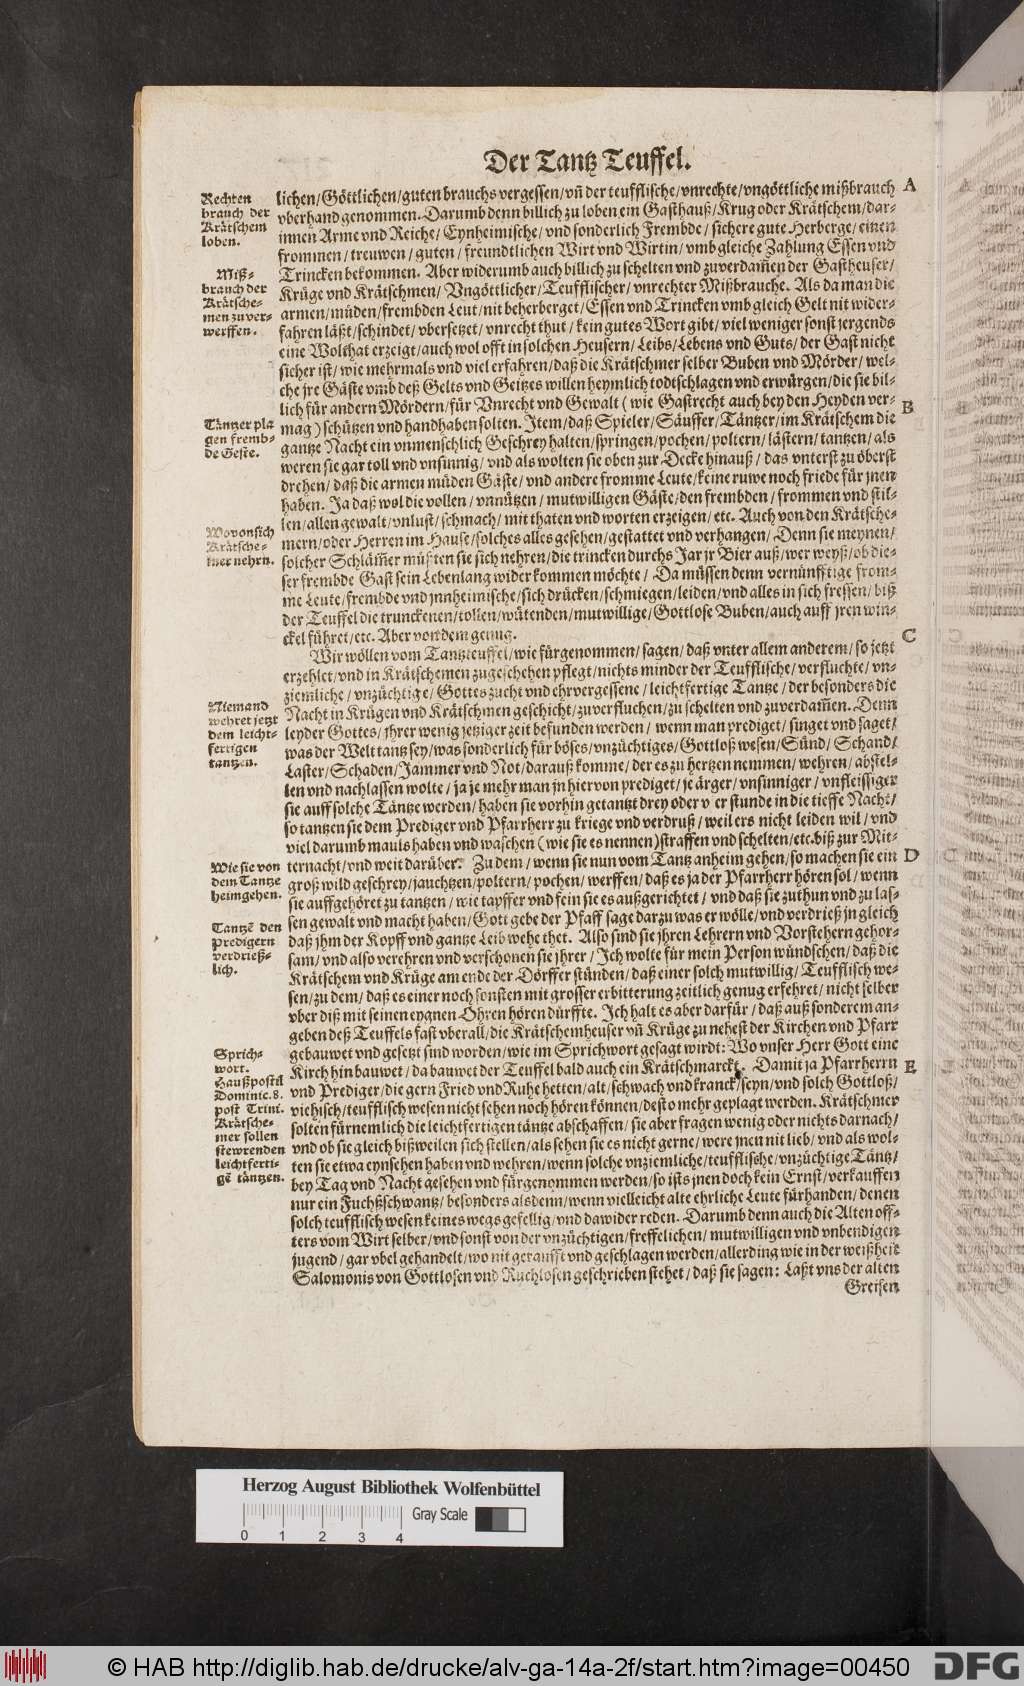 Der Tantz Teuffel.
lichen/Göttlichen/guten brauchs vergessen/vñ der teufflische/vnrechte/vngöttliche mißbrauch
vberhand genommen. Darumb denn billich zu loben ein Gasthauß/Krug oder Krätschem/dar-
innen Arme vnd Reiche/Eynheimische/vnd sonderlich Frembde/sichere gute Herberge/einen
frommen/treuwen/guten/freundtlichen Wirt vnd Wirtin/vmb gleiche Zahlung Essen vnd
Trincken bekommen. Aber widerumb auch billich zu schelten vnd zuverdam̃en der Gastheuser/
Krüge vnd Krätschmen/Vngöttlicher/Teufflischer/vnrechter Mißbrauche. Als da man die
armen/müden/frembden Leut/nit beherberget/Essen vnd Trincken vmb gleich Gelt nit wider-
fahren läßt/schindet/vbersetzet/vnrecht thut/kein gutes Wort gibt/viel weniger sonst jergends
eine Wolthat erzeigt/auch wol offt in solchen Heusern/Leibs/Lebens vnd Guts/der Gast nicht
sicher ist/wie mehrmals vnd viel erfahren/daß die Krätschmer selber Buben vnd Mörder/wel-
che jre Gäste vmb deß Gelts vnd Geitzes willen heymlich todtschlagen vnd erwürgen/die sie bil-
lich für andern Mördern/für Vnrecht vnd Gewalt (wie Gastrecht auch bey den Heyden ver-
mag) schützen vnd handhaben solten. Item/daß Spieler/Säuffer/Täntzer/im Krätschem die
gantze Nacht ein vnmenschlich Geschrey halten/springen/pochen/poltern/lästern/tantzen/als
weren sie gar toll vnd vnsinnig/vnd als wolten sie oben zur Decke hinauß/das vnterst zu öberst
drehen/daß die armen müden Gäste/vnd andere fromme Leute/keine ruwe noch friede für jnen
haben. Ja daß wol die vollen/vnnützen/mutwilligen Gäste/den frembden/frommen vnd stil-
len/allen gewalt/vnlust/schmach/mit thaten vnd worten erzeigen/etc. Auch von den Krätsche-
mern/oder Herren im Hause/solches alles gesehen/gestattet vnd verhangen/Denn sie meynen/
solcher Schläm̃er müsten sie sich nehren/die trincken durchs Jar jr Bier auß/wer weyß/ob die-
ser frembde Gast sein Lebenlang wider kommen möchte/Da müssen denn vernünfftige from-
me Leute/frembde vnd jnnheimische/sich drücken/schmiegen/leiden/vnd alles in sich fressen/biß
der Teuffel die trunckenen/tollen/wütenden/mutwillige/Gottlose Buben/auch auff jren win-
ckel führet/etc. Aber von dem genug.
Wir wöllen vom Tantzteuffel/wie fürgenommen/sagen/daß vnter allem anderem/so jetzt
erzehlet/vnd in Krätschemen zugeschehen pflegt/nichts minder der Teufflische/verfluchte/vn-
ziemliche/vnzüchtige/Gottes zucht vnd ehrvergessene/leichtfertige Tantze/der besonders die
Nacht in Krügen vnd Krätschmen geschicht/zu verfluchen/zu schelten vnd zuverdam̃en. Denn
leyder Gottes/jhrer wenig jetziger zeit befunden werden/wenn man prediget/singet vnd saget/
was der Welt tantz sey/was sonderlich für böses/vnzüchtiges/Gottloß wesen/Sünd/Schand/
Laster/Schaden/Jammer vnd Not/darauß komme/der es zu hertzen nemmen/wehren/abstel-
len vnd nachlassen wolte/ja je mehr man jn hiervon prediget/je ärger/vnsinniger/vnfleissiger
sie auff solche Täntze werden/haben sie vorhin getantzt drey oder vier stunde in die tieffe Nacht/
so tantzen sie dem Prediger vnd Pfarrherr zu kriege vnd verdruß/weil ers nicht leiden wil/vnd
viel darumb mauls haben vnd waschen (wie sie es nennen) straffen vnd schelten/etc. biß zur Mit-
ternacht/vnd weit darüber. Zu dem/wenn sie nun vom Tantz anheim gehen/so machen sie ein
groß wild geschrey/jauchtzen/poltern/pochen/werffen/daß es ja der Pfarrherr hören sol/wenn
sie auffgehöret zu tantzen/wie tapffer vnd fein sie es außgerichtet/vnd daß sie zuthun vnd zu las-
sen gewalt vnd macht haben/Gott gebe der Pfaff sage darzu was er wölle/vnd verdrieß jn gleich
daß jhm der Kopff vnd gantze Leib wehe thet. Also sind sie jhren Lehrern vnd Vorstehern gehor-
sam/vnd also verehren vnd verschonen sie jhrer/Ich wolte für mein Person wündschen/daß die
Krätschem vnd Krüge am ende der Dörffer stünden/daß einer solch mutwillig/Teufflisch we-
sen/zu dem/daß es einer noch sonsten mit grosser erbitterung zeitlich genug erfehret/nicht selber
vber diß mit seinen eygnen Ohren hören dürffte. Ich halt es aber darfür/daß auß sonderem an-
geben deß Teuffels fast vberall/die Krätschemheuser vñ Krüge zu nehest der Kirchen vnd Pfarr
gebauwet vnd gesetzt sind worden/wie im Sprichwort gesagt wirdt: Wo vnser Herr Gott eine
Kirch hin bauwet/da bauwet der Teuffel bald auch ein Krätschmarckt. Damit ja Pfarrherrn
vnd Prediger/die gern Fried vnd Ruhe hetten/alt/schwach vnd kranck/seyn/vnd solch Gottloß/
viehisch/teufflisch wesen nicht sehen noch hören können/desto mehr geplagt werden. Krätschmer
solten fürnemlich die leichtfertigen täntze abschaffen/sie aber fragen wenig oder nichts darnach/
vnd ob sie gleich bißweilen sich stellen/als sehen sie es nicht gerne/were jnen nit lieb/vnd als wol-
ten sie etwa eynsehen haben vnd wehren/wenn solche vnziemliche/teufflische/vnzüchtige Täntz/
bey Tag vnd Nacht gesehen vnd fürgenommen werden/so ists jnen doch kein Ernst/verkauffen
nur ein Fuchßschwantz/besonders alsdenn/wenn vielleicht alte ehrliche Leute fürhanden/denen
solch teufflisch wesen keines wegs gefellig/vnd dawider reden. Darumb denn auch die Alten off-
ters vom Wirt selber/vnd sonst von der vnzüchtigen/freffelichen/mutwilligen vnd vnbendigen
jugend/gar vbel gehandelt/wo nit geraufft vnd geschlagen werden/allerding wie in der weißheit
Salomonis von Gottlosen vnd Ruchlosen geschrieben stehet/daß sie sagen: Laßt vns der alten
Greisen
Rechten
brauch der
Krätschem
loben.
Miß-
brauch der
Krätsche-
men zu ver-
werffen.
Täntzer pla
gen fremb-
de Geste.
Wovon sich
Krätsche-
mer nehrn.
Niemand
wehret jetzt
dem leicht-
fertigen
tantzen.
Wie sie von
dem Tantze
heimgehen.
Tantzẽ den
predigern
verdrieß-
lich.
Sprich-
wort.
Haußpostil
Dominic. 8.
post Trini.
Krätsche-
mer sollen
stewren den
leichtferti-
gẽ täntzen.
A
B
C
D
E
Herzog August Bibliothek Wolfenbüttel
Gray Scale
0 1 2 3 4
© HAB http://diglib.hab.de/drucke/alv-ga-14a-2f/start.htm?image=00450
DFG